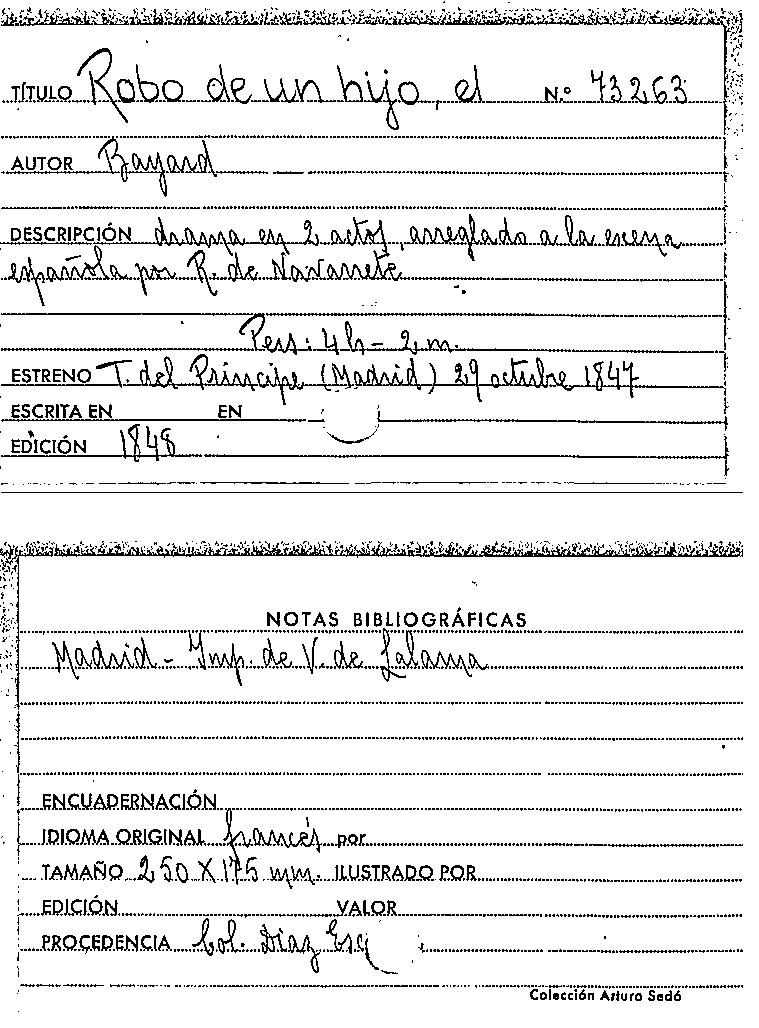 TÍTULO Robo de un hijo, el N.º 73263
AUTOR Bayard
DESCRIPCIÓN drama en 2 actos, arreglado a la escena
española por R. de Navarrete
Pers: 4 h - 2 m.
ESTRENO T. del Príncipe (Madrid) 29 octubre 1847
ESCRITA EN EN
EDICIÓN 1848
NOTAS BIBLIOGRÁFICAS
Madrid - Imp. de V. de Lalama
ENCUADERNACIÓN
IDIOMA ORIGINAL francés por
TAMAÑO 250 X 175 mm. ILUSTRADO POR
EDICIÓN VALOR
PROCEDENCIA Col. Díaz Esq
Colección Arturo Sedó